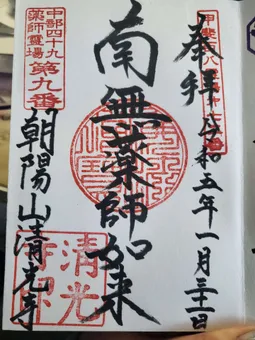 奉拜
令和五年一月三十一日
南無薬師如来
中部四十九
薬師霊場
第九番
朝陽山清光寺
清光
寺印